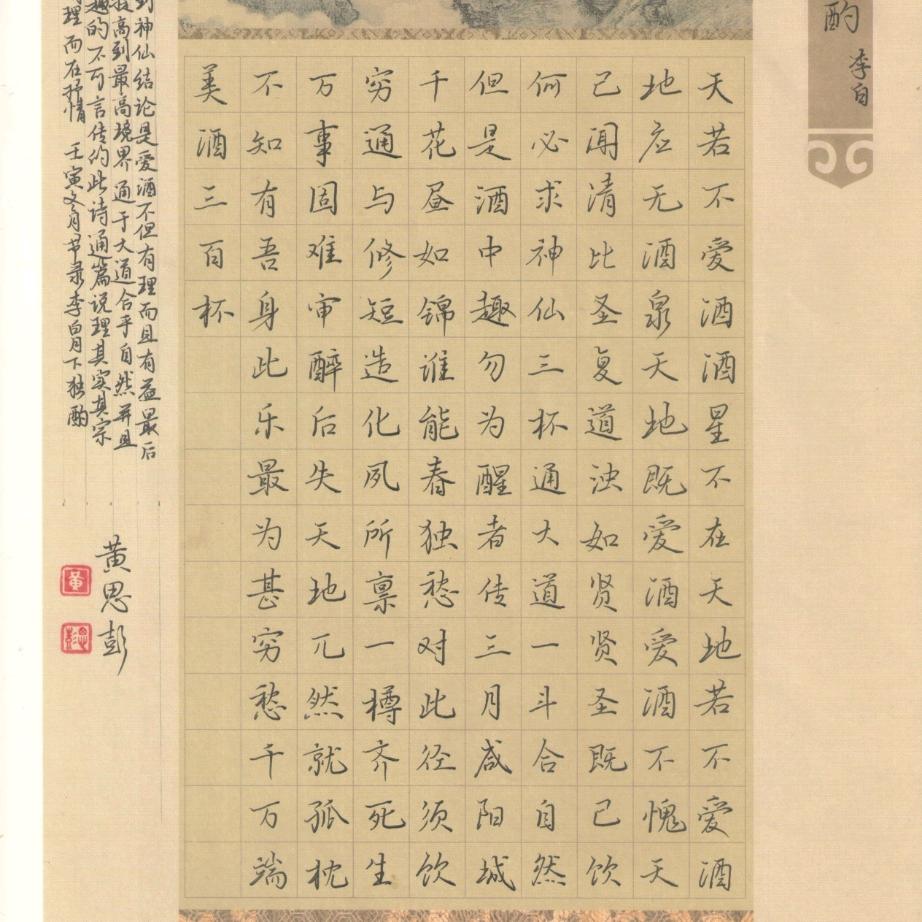 酌
李白
天若不爱酒酒星不在天地若不爱酒
地应无酒泉天地既爱酒爱酒不愧天
已闻清比圣复道浊如贤贤圣既已饮
何必求神仙三杯通大道一斗合自然
但是酒中趣勿为醒者传三月咸阳城
千花昼如锦谁能春独愁对此径须饮
穷通与修短造化夙所禀一樽齐死生
万事固难审醉后失天地兀然就孤枕
不知有吾身此乐最为甚穷愁千万端
美酒三百杯
到神仙结论是爱酒不但有理而且有益最后
提高到最高境界通于大道合乎自然并且
趣的不可言传的此诗通篇说理其实其宗
理而在抒情 壬寅冬月节录李白月下独酌
黄思彭
黄